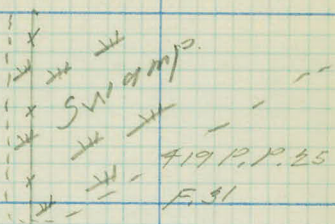 Swamp.
419 P.P. 25
F. 31